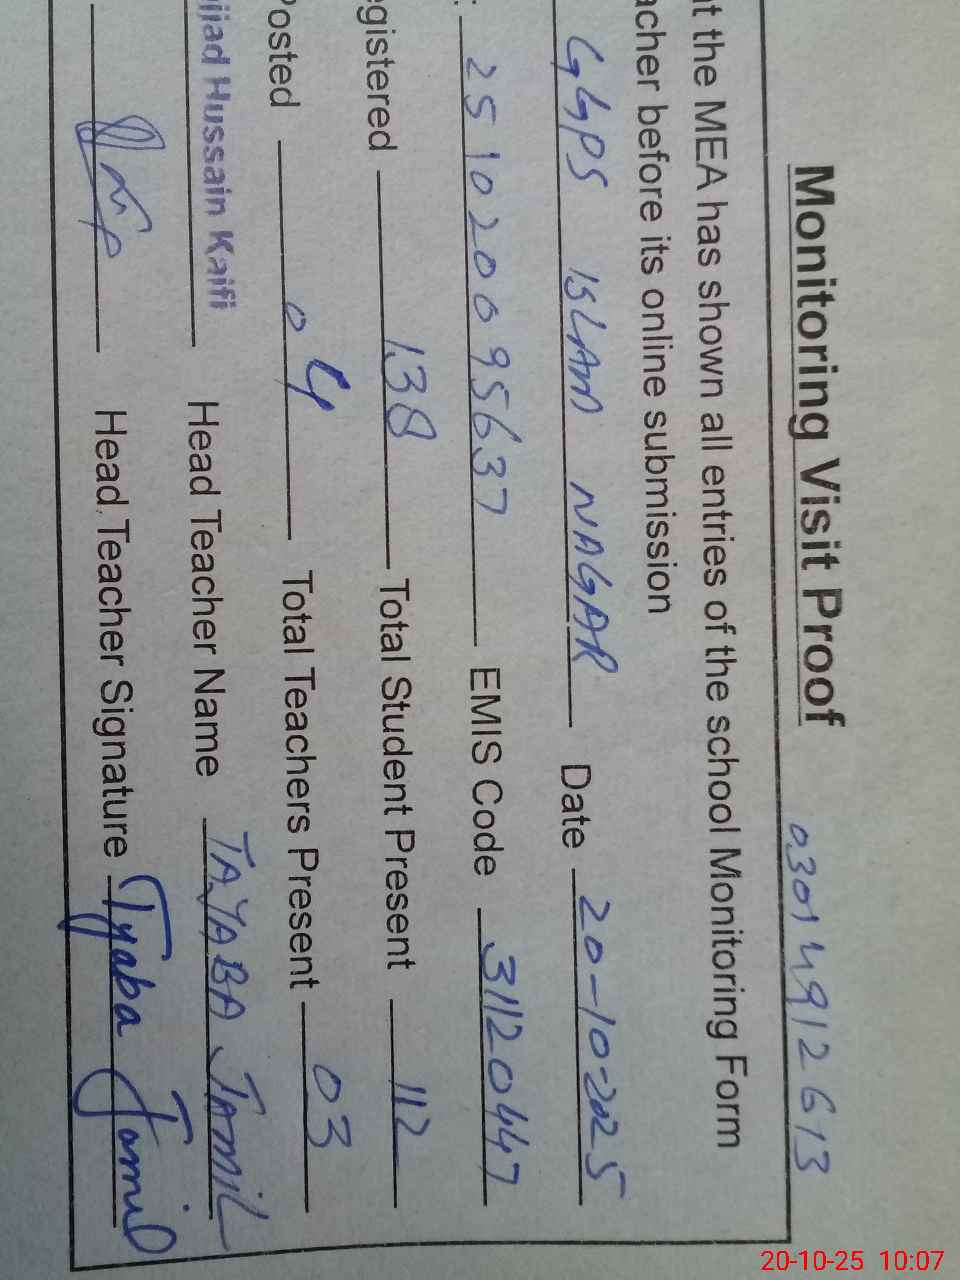 Monitoring Visit Proof 03014912613
at the MEA has shown all entries of the school Monitoring Form
acher before its online submission
GGPS ISLAM NAGAR Date 20-10-2025
: 251020095637 EMIS Code 31120447
egistered 138 Total Student Present 112
Posted 04 Total Teachers Present 03
jjad Hussain Kaifi Head Teacher Name TAYABA JAMIL
Head Teacher Signature Tyaba Jamil
20-10-25 10:07